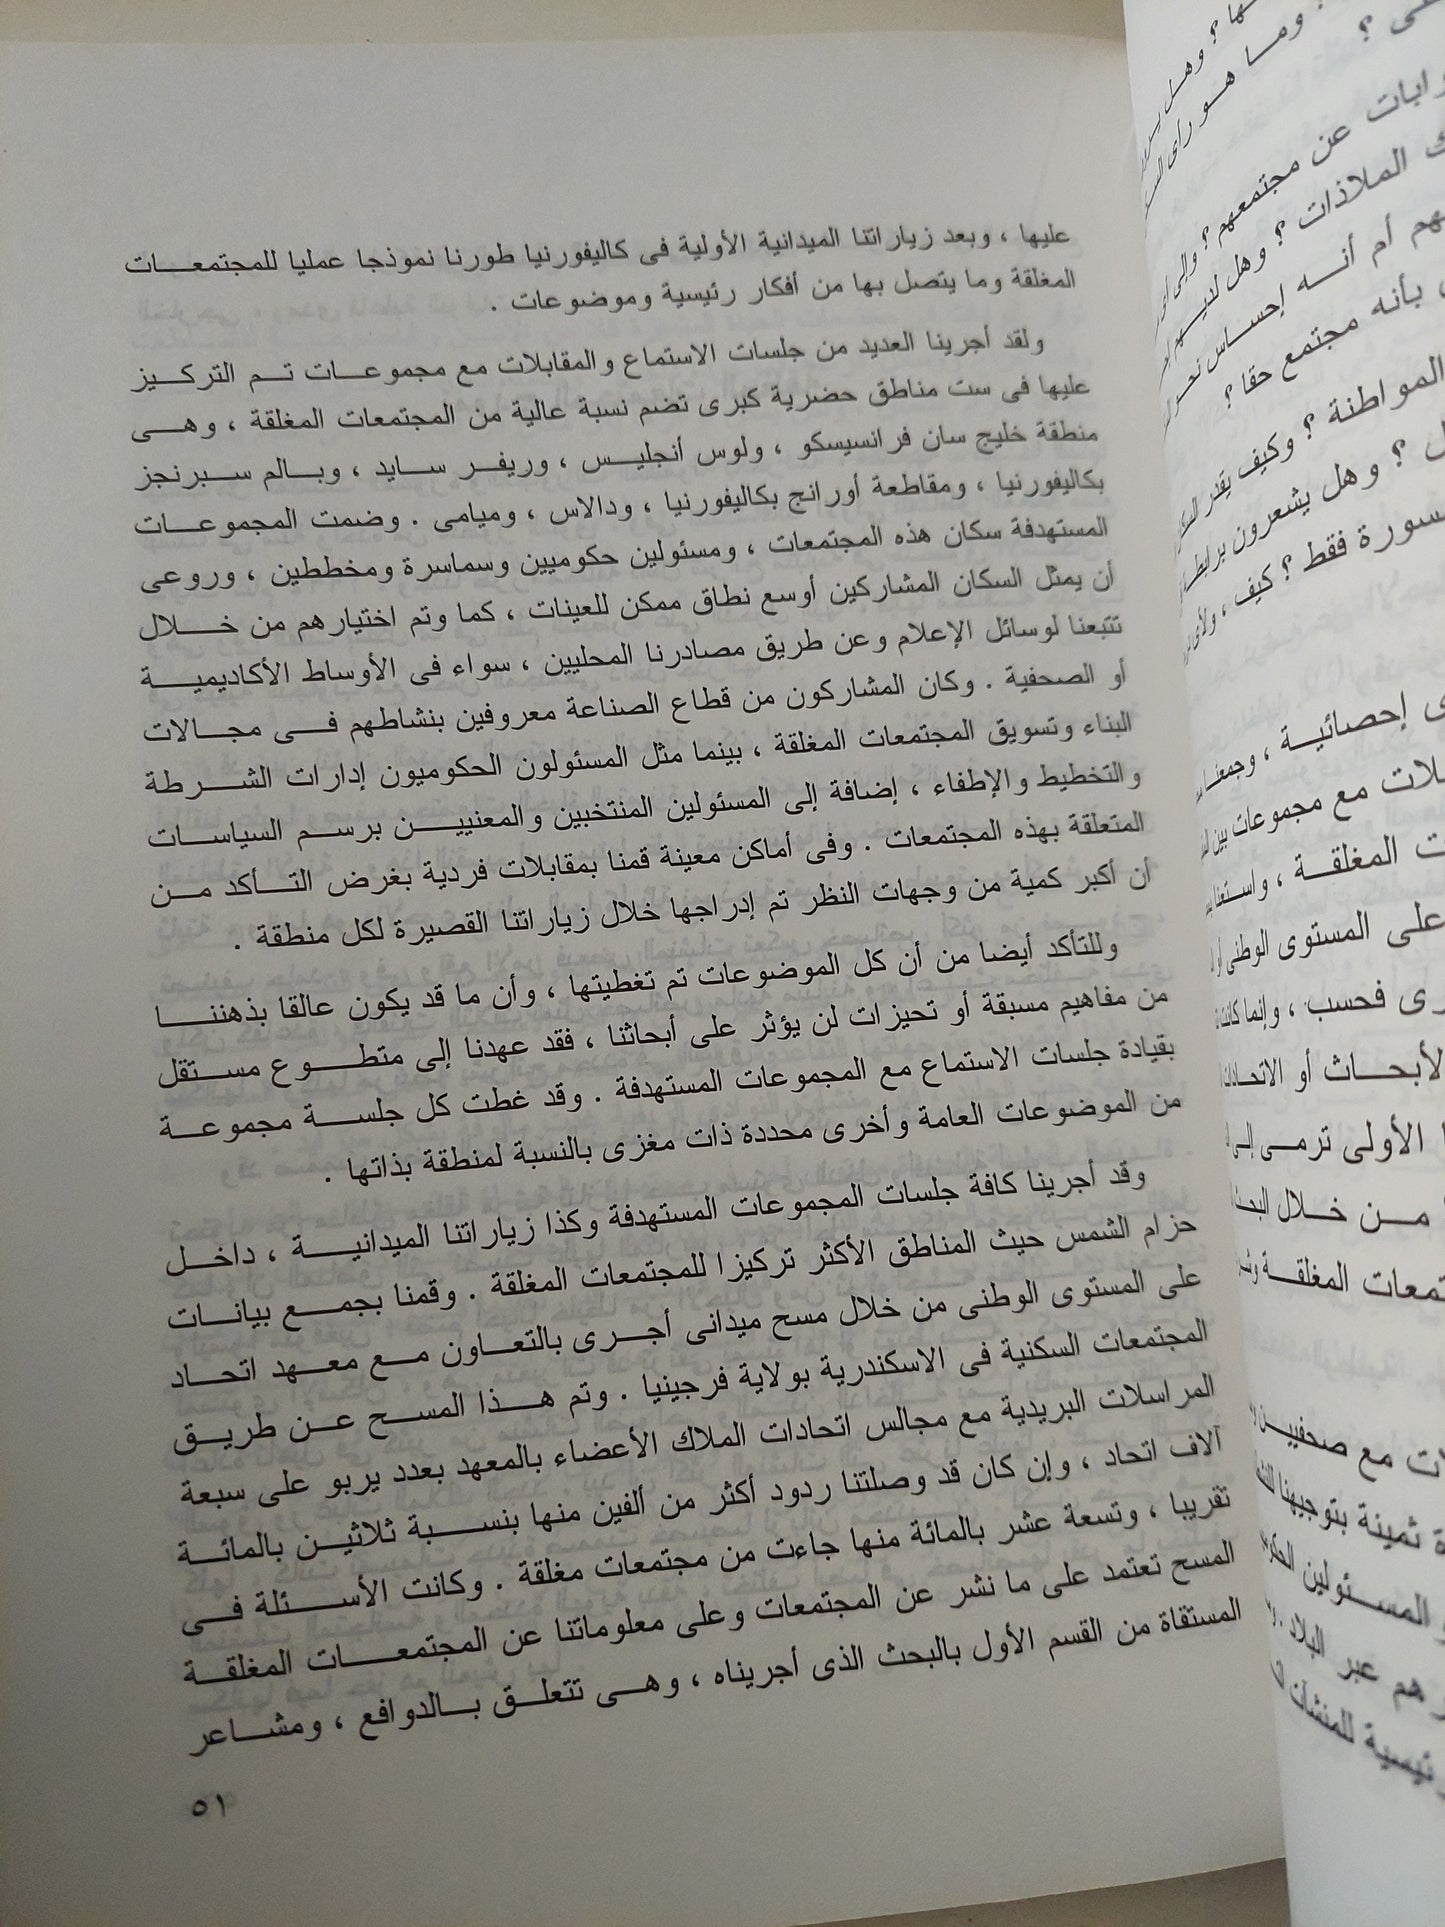 عليها ، وبعد زياراتنا الميدانية الأولية فى كاليفورنيا طورنا نموذجا عمليا للمجتمعات
المغلقة وما يتصل بها من أفكار رئيسية وموضوعات .
ولقد أجرينا العديد من جلسات الاستماع والمقابلات مع مجموعات تم التركيز
عليها فى ست مناطق حضرية كبرى تضم نسبة عالية من المجتمعات المغلقة ، وهى
منطقة خليج سان فرانسيسكو ، ولوس أنجليس ، وريفر سايد ، وبالم سبرنجز
بكاليفورنيا ، ومقاطعة أورانج بكاليفورنيا ، ودالاس ، وميامى . وضمت المجموعات
المستهدفة سكان هذه المجتمعات ، ومسئولين حكوميين وسماسرة ومخططين ، وروعى
أن يمثل السكان المشاركين أوسع نطاق ممكن للعينات ، كما وتم اختيارهم من خلال
تتبعنا لوسائل الإعلام وعن طريق مصادرنا المحليين ، سواء فى الأوساط الأكاديمية
أو الصحفية . وكان المشاركون من قطاع الصناعة معروفين بنشاطهم فى مجالات
البناء وتسويق المجتمعات المغلقة ، بينما مثل المسئولون الحكوميون إدارات الشرطة
والتخطيط والإطفاء ، إضافة إلى المسئولين المنتخبين والمعنيين برسم السياسات
المتعلقة بهذه المجتمعات . وفى أماكن معينة قمنا بمقابلات فردية بغرض التأكد من
أن أكبر كمية من وجهات النظر تم إدراجها خلال زياراتنا القصيرة لكل منطقة .
وللتأكد أيضا من أن كل الموضوعات تم تغطيتها ، وأن ما قد يكون عالقا بذهننا
من مفاهيم مسبقة أو تحيزات لن يؤثر على أبحاثنا ، فقد عهدنا إلى متطوع مستقل
بقيادة جلسات الاستماع مع المجموعات المستهدفة . وقد غطت كل جلسة مجموعة
من الموضوعات العامة وأخرى محددة ذات مغزى بالنسبة لمنطقة بذاتها .
وقد أجرينا كافة جلسات المجموعات المستهدفة وكذا زياراتنا الميدانية ، داخل
حزام الشمس حيث المناطق الأكثر تركيزا للمجتمعات المغلقة . وقمنا بجمع بيانات
على المستوى الوطنى من خلال مسح ميدانى أجرى بالتعاون مع معهد اتحاد
المجتمعات السكنية فى الاسكندرية بولاية فرجينيا . وتم هذا المسح عن طريق
المراسلات البريدية مع مجالس اتحادات الملاك الأعضاء بالمعهد بعدد يربو على سبعة
آلاف اتحاد ، وإن كان قد وصلتنا ردود أكثر من ألفين منها بنسبة ثلاثين بالمائة
تقريبا ، وتسعة عشر بالمائة منها جاءت من مجتمعات مغلقة . وكانت الأسئلة فى
المسح تعتمد على ما نشر عن المجتمعات وعلى معلوماتنا عن المجتمعات المغلقة
المستقاة من القسم الأول بالبحث الذى أجريناه ، وهى تتعلق بالدوافع ، ومشاعر
٥١
وما هو راى
عن مجتمعهم ؟ وإلى
الملاذات ؟ وهل لديهم
أم أنه إحساس نحو
بأنه مجتمع حقا ؟
المواطنة ؟ وكيف يقدر
؟ وهل يشعرون
فقط ؟ كيف ،
إحصائية ، وجمعنا
مع مجموعات بين
المغلقة ،
على المستوى الوطنى
فحسب ، وإنما
أو
الأولى ترمى إلى
من خلال
المغلقة
مع صحفيين
ثمينة بتوجيهنا
المسئولين
عبر البلاد
للمنشآت